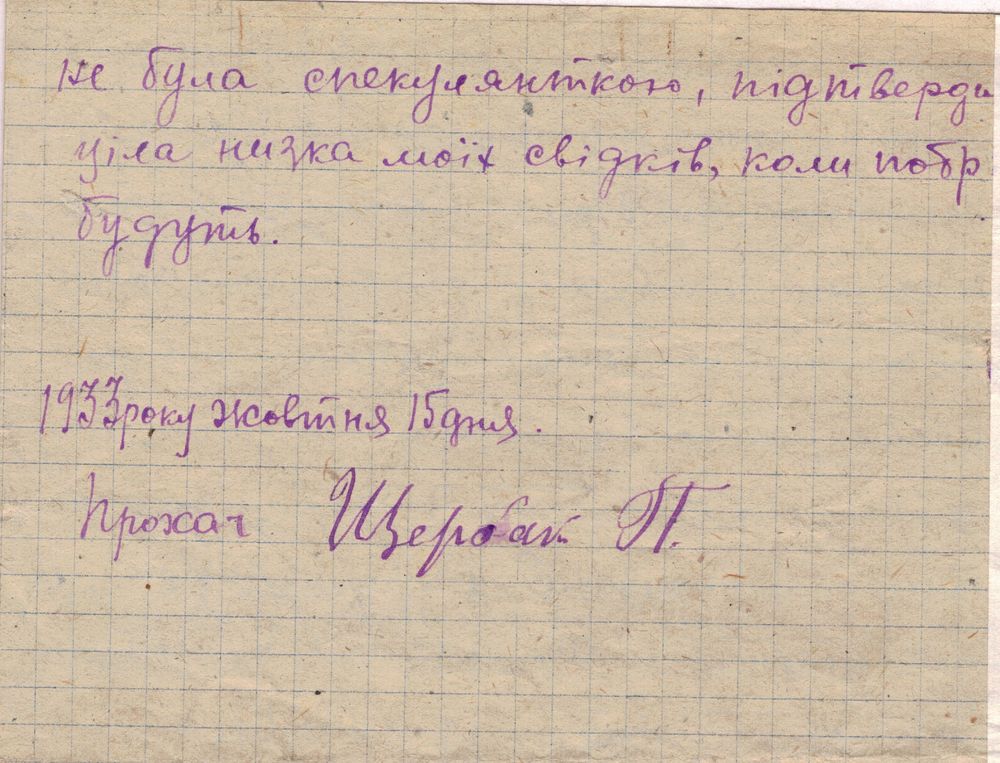 не була спекулянткою, підтверди
ціла низка моїх свідків, коли побр
будуть.
1933 року жовтня 15 дня.
Прохач Щербак П.